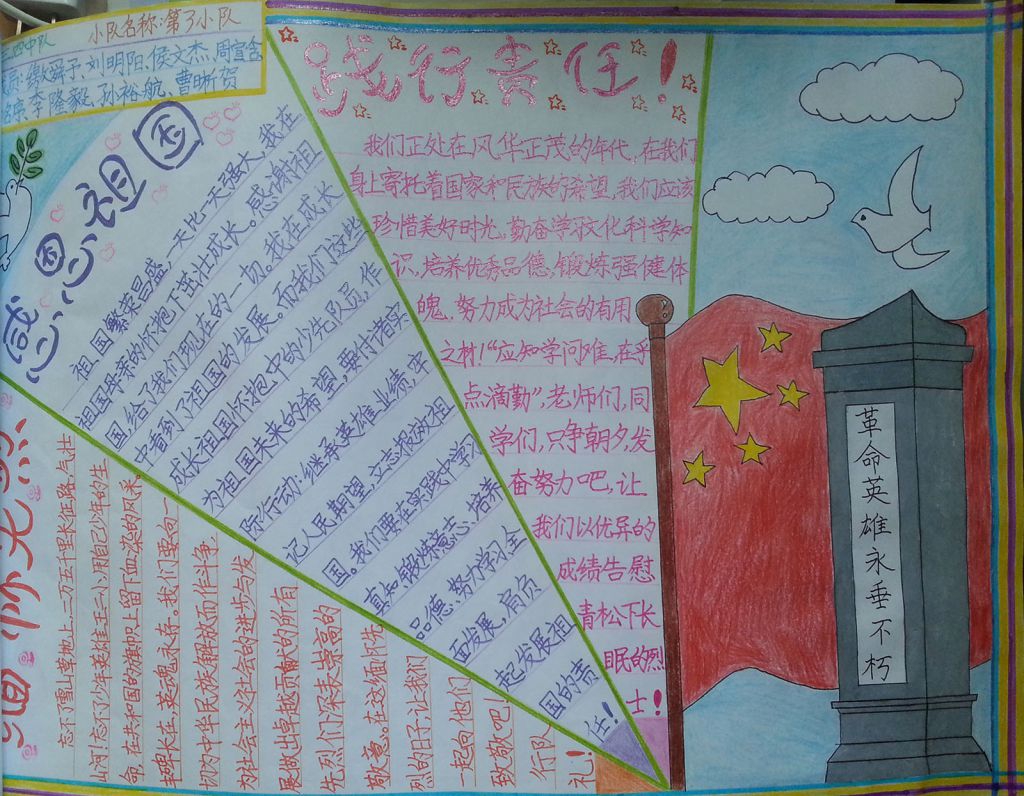 四中队 小队名称:第3小队
刘明阳、侯文杰、周宣含
李隆毅、孙裕航、曹晰贺
感恩祖国
祖国繁荣昌盛,一天比一天强大,我在
祖国母亲的怀抱下茁壮成长。感谢祖
国,给了我们现在的一切。我在成长
中看到了祖国的发展。而我们这些
成长祖国怀抱中的少先队员,作
为祖国未来的希望,要付诸实
际行动:继承英雄业绩,牢
记人民期望,立志报效祖
国。我们要在实践中学习
真知,锻炼意志、培养
品德、努力学习全
面发展,肩负
起发展祖
国的责
任!
践行责任!
我们正处在风华正茂的年代,在我们
身上寄托着国家和民族的希望,我们应该
珍惜美好时光,勤奋学习文化科学知
识,培养优秀品德,锻炼强健体
魄,努力成为社会的有用
之材!“应知学问难,在乎
点滴勤”,老师们,同
学们,只争朝夕,发
奋努力吧,让
我们以优异的
成绩告慰
青松下长
眠的烈
士!
缅怀先烈
忘不了雪山草地上,二万五千里长征路,气壮
山河!忘不了少年英雄王二小,用自己少年的生
命,在共和国的旗帜上留下血染的风采
丰碑长在,英魂永存。我们要向一
切为中华民族解放而作斗争、
为社会主义社会的进步与发
展做出卓越贡献的所有
先烈们深表崇高的
敬意。在这缅怀先
烈的日子,让我们
一起向他们
致敬吧!
行队
礼!
革命英雄永垂不朽